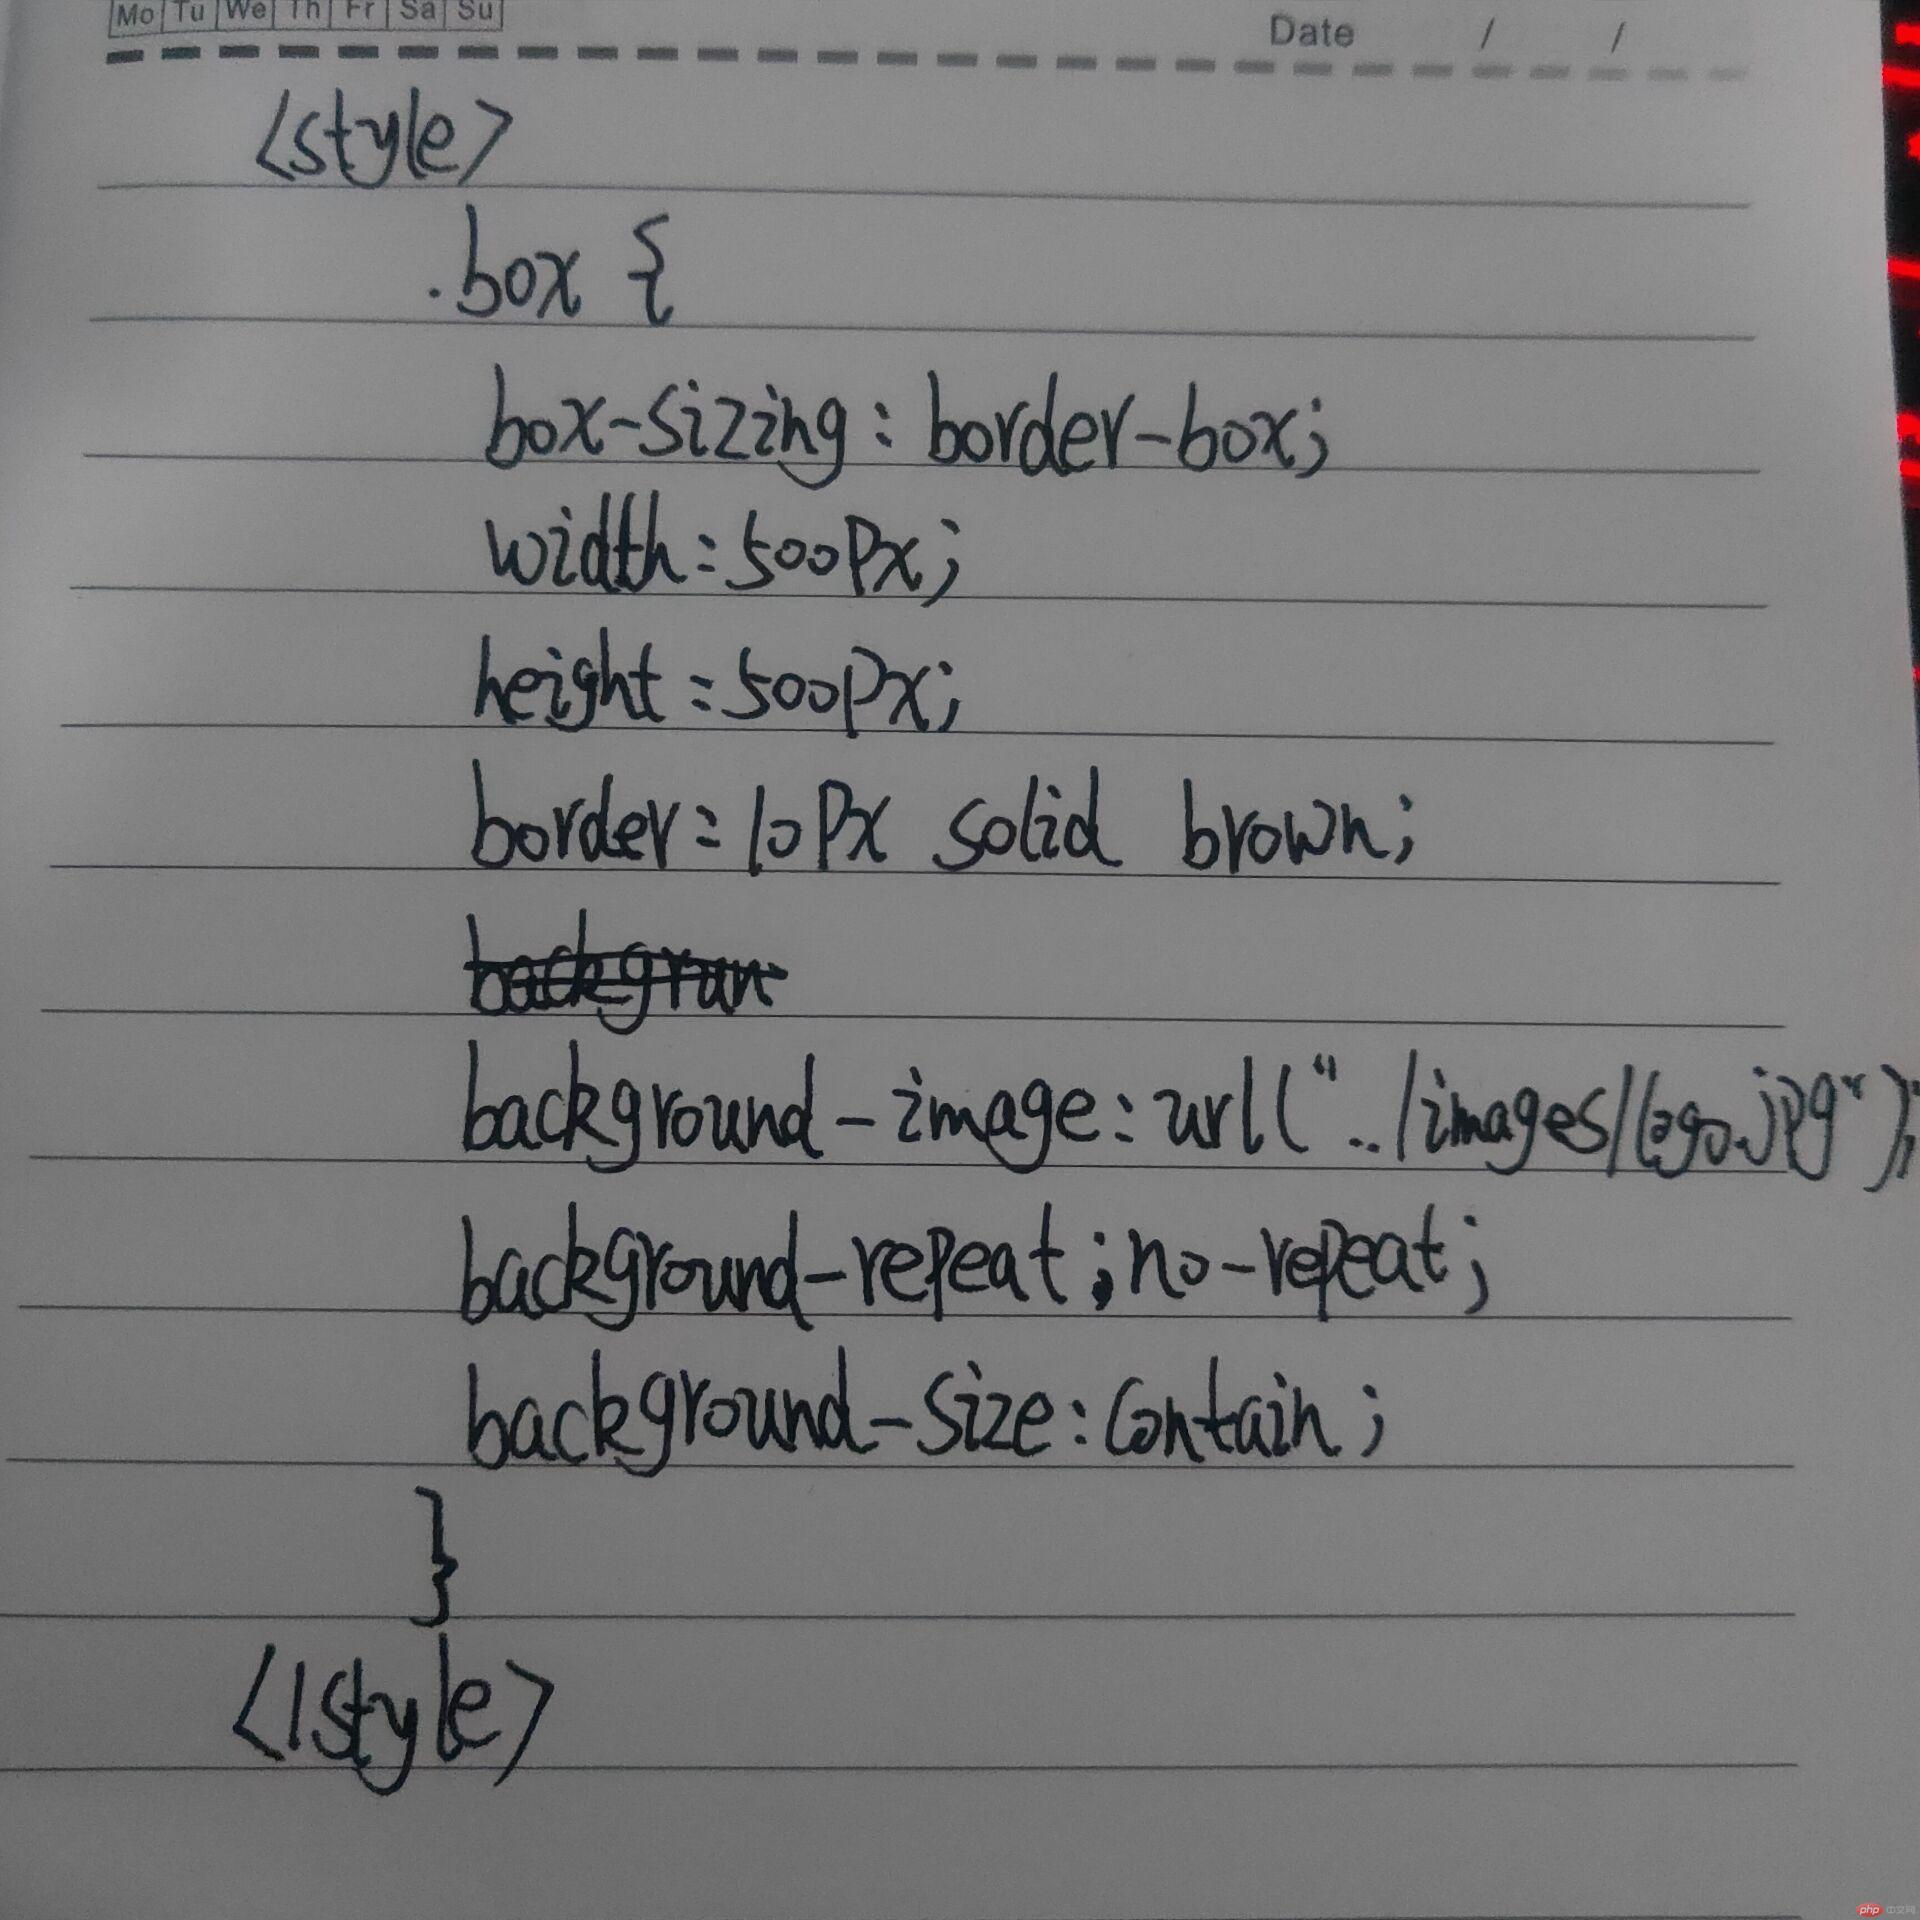 Mo Tu We Th Fr Sa Su
Date / /
<style>
.box {
box-sizing: border-box;
width:500px;
height:500px;
border:10px solid brown;
background-image:url("../images/logo.jpg");
background-repeat;no-repeat;
background-size:contain;
}
</style>
php 中文网